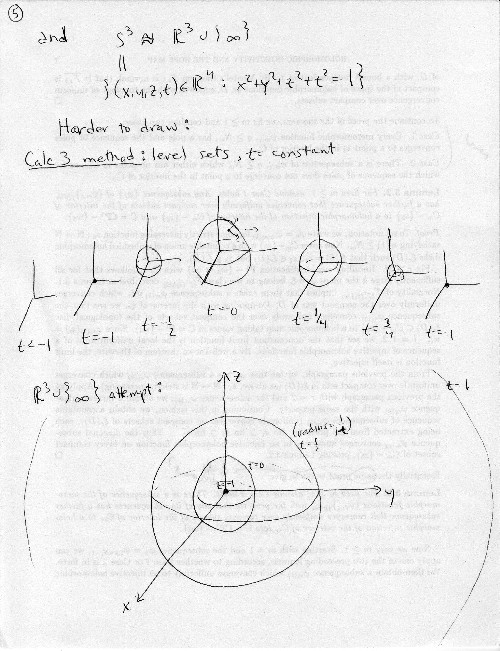 5
and S³ ≈ ℝ³ ∪ {∞}
||
{(x,y,z,t)∈ℝ⁴ : x²+y²+t²+t²=1}
Harder to draw:
Calc 3 method: level sets, t= constant
t<-1
t=-1
t=-½
t=0
t=¼
t=¾
t=1
ℝ³∪{∞} attempt:
z
t=0
t=-1
y
x